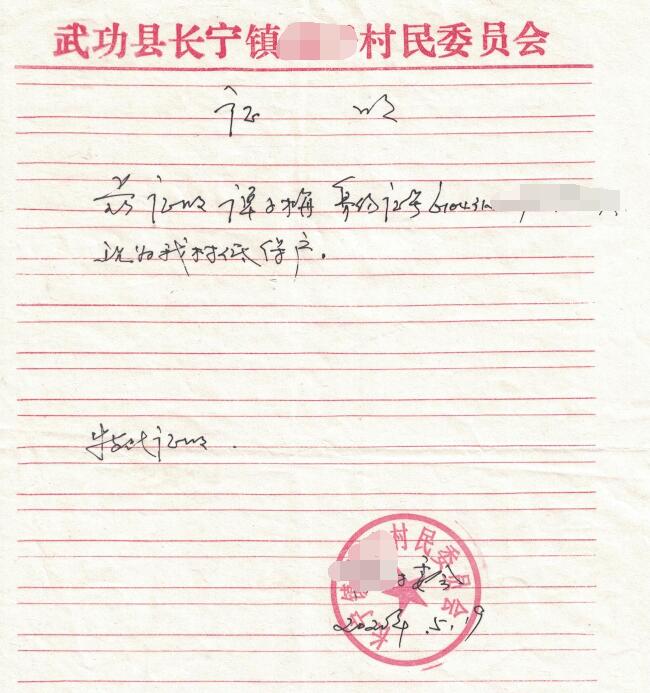 武功县长宁镇村民委员会
证 明
兹证明谭子梅 身份证号610431
现为我村低保户.
特此证明.
长宁镇村民委员会
村委会
5.19